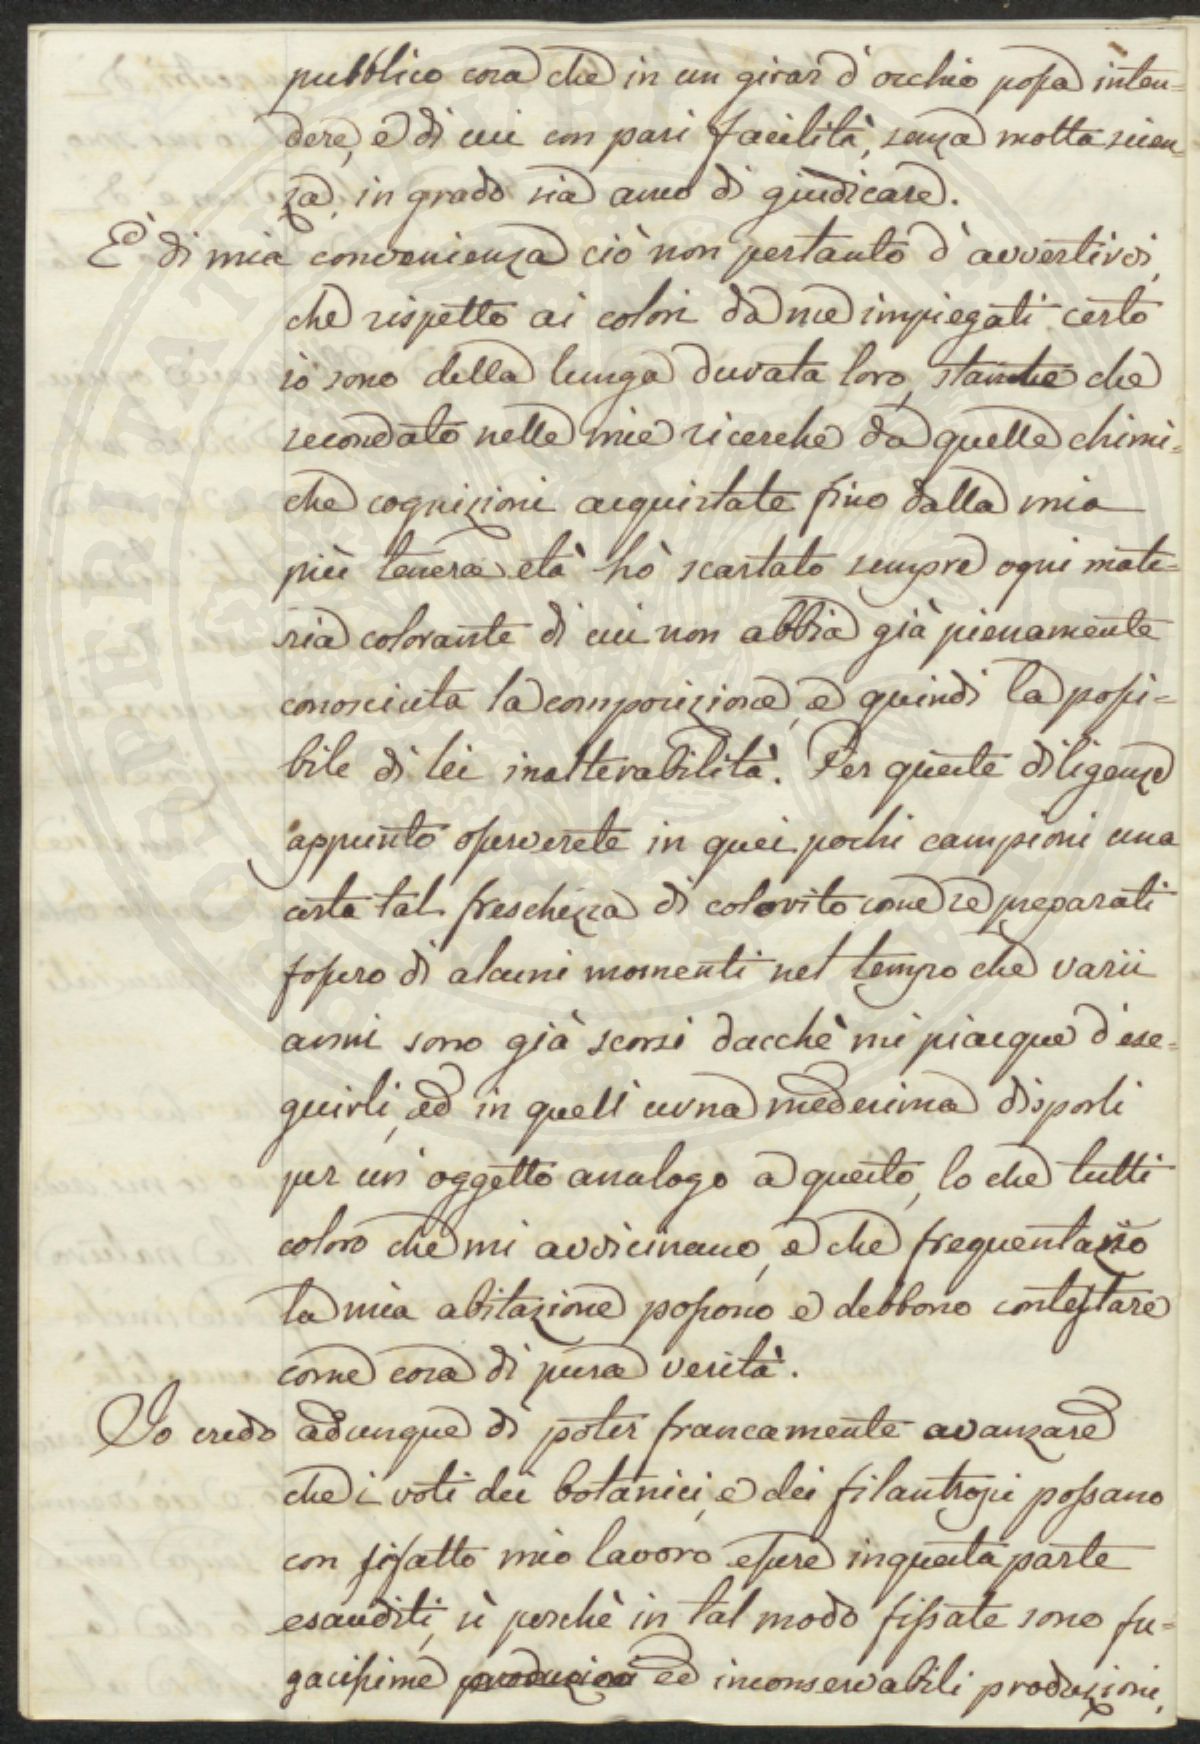 pubblico cosa che in un girar d'occhio possa inten=
dere, e di cui con pari facilità, senza molta scien=
za, in grado sia anco di giudicare.
È di mia convenienza ciò non pertanto d'avvertirvi,
che rispetto ai colori da me impiegati certo
io sono della lunga durata loro, stante che
secondato nelle mie ricerche da quelle chimi=
che cognizioni acquistate fino dalla mia
più tenera età hò scartato sempre ogni mate=
ria colorante di cui non abbia già pienamente
conosciuta la composizione, e quindi la possi=
bile di lei inalterabilità. Per queste diligenze
appunto osserverete in quei pochi campioni una
certa tal freschezza di colorito come se preparati
fossero di alcuni momenti nel tempo che varii
anni sono già scorsi dacchè mi piacque d'ese=
guirli, ed in quell'urna medesima disporli
per un'oggetto analogo a questo, lo che tutti
coloro che mi avvicinano, e che frequentano
la mia abitazione possono e debbono contestare
come cosa di pura verità.
Io credo adunque di poter francamente avanzare
che i voti dei botanici, e dei filantropi possano
con sifatto mio lavoro essere in questa parte
esauditi, sì perchè in tal modo fissate sono fu=
gacissime produzioni ed inconservabili produzioni,